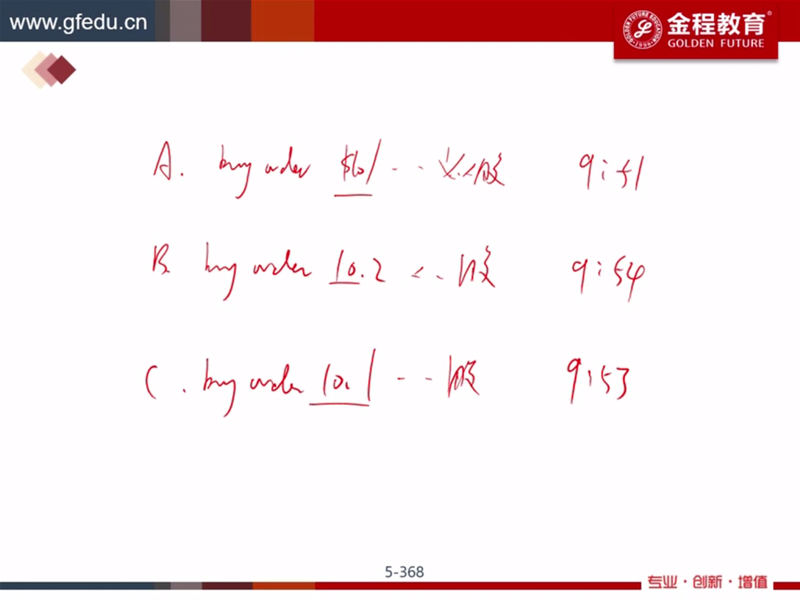 www.gfedu.cn
金程教育
GOLDEN FUTURE
A. buy order $10.1 -- 股 9:51
B. buy order 10.2 -- 1股 9:54
C. buy order 10.1 -- 1股 9:53
5-368
专业·创新·增值